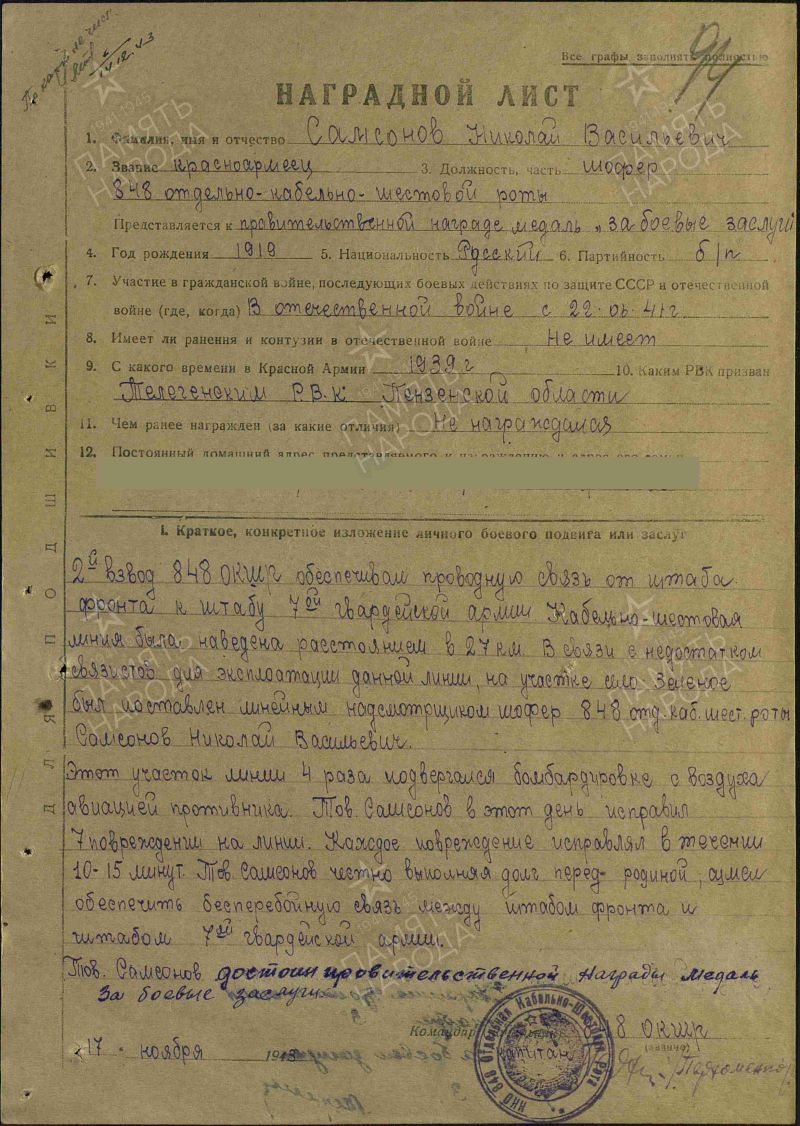 Все графы заполнять полностью
94
НАГРАДНОЙ ЛИСТ
1. Фамилия, имя и отчество Самсонов Николай Васильевич
2. Звание красноармеец 3. Должность, часть шофер
848 отдельно-кабельно-шестовой роты
Представляется к правительственной награде медаль „за боевые заслуги
4. Год рождения 1919 5. Национальность Русский 6. Партийность б/п
7. Участие в гражданской войне, последующих боевых действиях по защите СССР и отечественной
войне (где, когда) В отечественной войне с 22.06.41г
8. Имеет ли ранения и контузии в отечественной войне Не имеет
9. С какого времени в Красной Армии 1939г 10. Каким РВК призван
Телегенским Р.В.К Пензенской области
11. Чем ранее награжден (за какие отличия) Не награждался
12. Постоянный домашний адрес представляемого к награждению и адрес его
I. Краткое, конкретное изложение личного боевого подвига или заслуг
2й взвод 848 ОКШР обеспечивал проводную связь от штаба
фронта к штабу 7ой гвардейской армии Кабельно-шестовая
линия была наведена расстоянием в 27 км. В связи с недостатком
связистов для эксплоатации данной линии, на участке село Зеленое
был поставлен линейным надсмотрщиком шофер 848 отд. каб. шест. роты
Самсонов Николай Васильевич.
Этот участок линии 4 раза подвергался бомбардировке с воздуха
авиацией противника. Тов. Самсонов в этот день исправил
7 повреждении на линии. Каждое повреждение исправлял в течении
10-15 минут. Тов. Самсонов честно выполняя долг перед- родиной, сумел
обеспечить бесперебойную связь между штабом фронта и
штабом 7ой гвардейской армии.
Тов. Самсонов достоин правительственной Награды медаль
За боевые заслуги
Командир 8 ОКШР
17 ноября 1943 капитан (звание) Пархоменко
НКО 848 Отдельная Кабельно-Шестовая Рота
ДЛЯ ПОДШИВКИ
ПАМЯТЬ НАРОДА